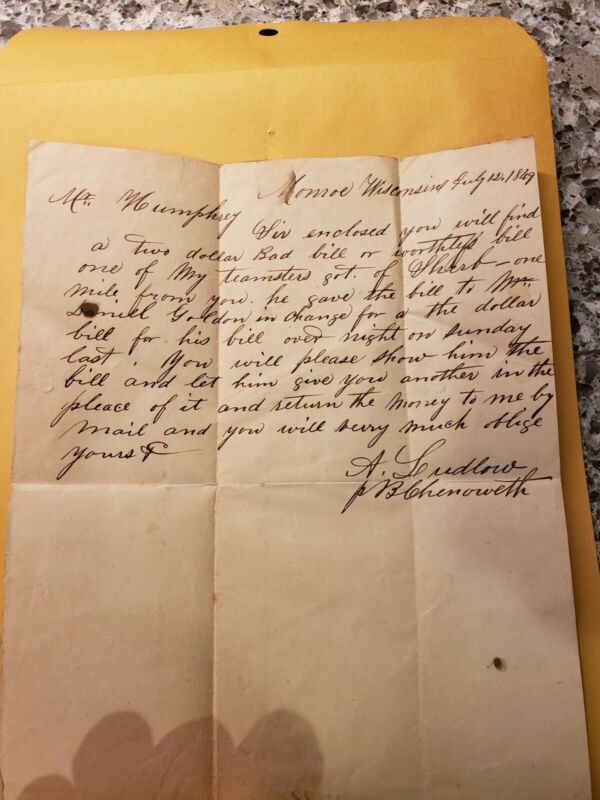 Monroe Wisconsin July 12, 1849
Mr. Humphrey
Sir enclosed you will find
a two dollar Bad bill or worthless bill
one of My teamsters got of Sherb - one
mile from you. he gave the bill to Mr.
Daniel Goldon in change for a the dollar
bill for his bill over night on Sunday
last. You will please show him the
bill and let him give you another in the
pleace of it and return the money to me by
mail and you will verry much oblige
yours &
A. Ludlow
p B Chenoweth